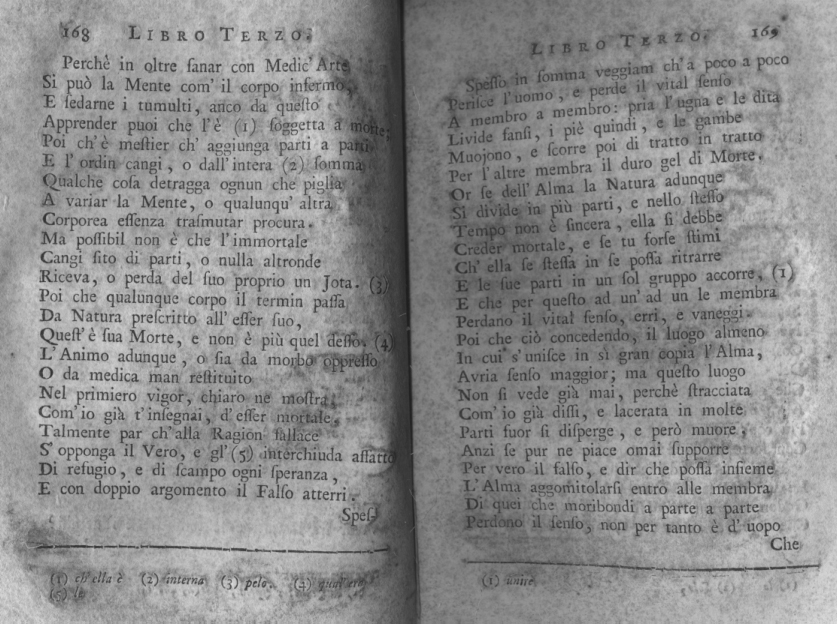 168 LIBRO TERZO.
Perchè in oltre ſanar con Medic' Arte
Si può la Mente com' il corpo infermo,
E ſedarne i tumulti, anco da queſto
Apprender puoi che l'è (1) ſoggetta a morte;
Poi ch'è meſtier ch' aggiunga parti a parti
E l' ordin cangi, o dall' intera (2) ſomma
Qualche coſa detragga ognun che piglia
A variar la Mente, o qualunqu' altra
Corporea eſſenza traſmutar procura.
Ma poſſibil non è che l' immortale
Cangi ſito di parti, o nulla altronde
Riceva, o perda del ſuo proprio un Jota. (3)
Poi che qualunque corpo il termin paſſa
Da Natura preſcritto all' eſſer ſuo,
Queſt' è ſua Morte, e non è più quel deſſo. (4)
L' Animo adunque, o ſia da morbo oppreſſo
O da medica man reſtituito
Nel primiero vigor, chiaro ne moſtra,
Com' io già t' inſegnai, d' eſſer mortale.
Talmente par ch' alla Ragion fallace
S' opponga il Vero, e gl' (5) interchiuda affatto
Di refugio, e di ſcampo ogni ſperanza,
E con doppio argomento il Falſo atterri.
Speſ-
(1) ch' ella è (2) interna (3) pelo. (4)
(5)
LIBRO TERZO. 169
Speſſo in ſomma veggiam ch' a poco a poco
Periſce l' uomo, e perde il vital ſenſo
A membro a membro: pria l' ugna e le dita
Livide fanſi, i piè quindi, e le gambe
Muojono, e ſcorre poi di tratto in tratto
Per l' altre membra il duro gel di Morte.
Or ſe dell' Alma la Natura adunque
Si divide in più parti, e nello ſteſſo
Tempo non è ſincera, ella ſi debbe
Creder mortale, e ſe tu forſe ſtimi
Ch' ella ſe ſteſſa in ſe poſſa ritrarre
E le ſue parti in un ſol gruppo accorre, (1)
E che per queſto ad un' ad un le membra
Perdano il vital ſenſo, erri, e vaneggi.
Poi che ciò concedendo, il luogo almeno
In cui s' uniſce in sì gran copia l' Alma,
Avria ſenſo maggior; ma queſto luogo
Non ſi vede già mai, perchè ſtracciata
Com' io già diſſi, e lacerata in molte
Parti fuor ſi diſperge, e però muore;
Anzi ſe pur ne piace omai ſupporre
Per vero il falſo, e dir che poſſa inſieme
L' Alma aggomitolarſi entro alle membra
Di quei che moribondi a parte a parte
Perdono il ſenſo, non per tanto è d' uopo
Che
(1) unire